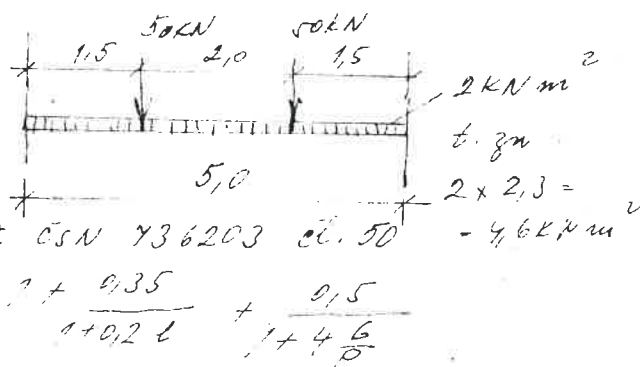 50KN 50KN
1,5 2,0 1,5
2KN m²
t. zn
5,0
2 x 2,3 =
- 4,6KN m²
ČSN 736203 čl. 50
1 + 0,35 / 1+0,2 l + 0,5 / 1+4 G/P